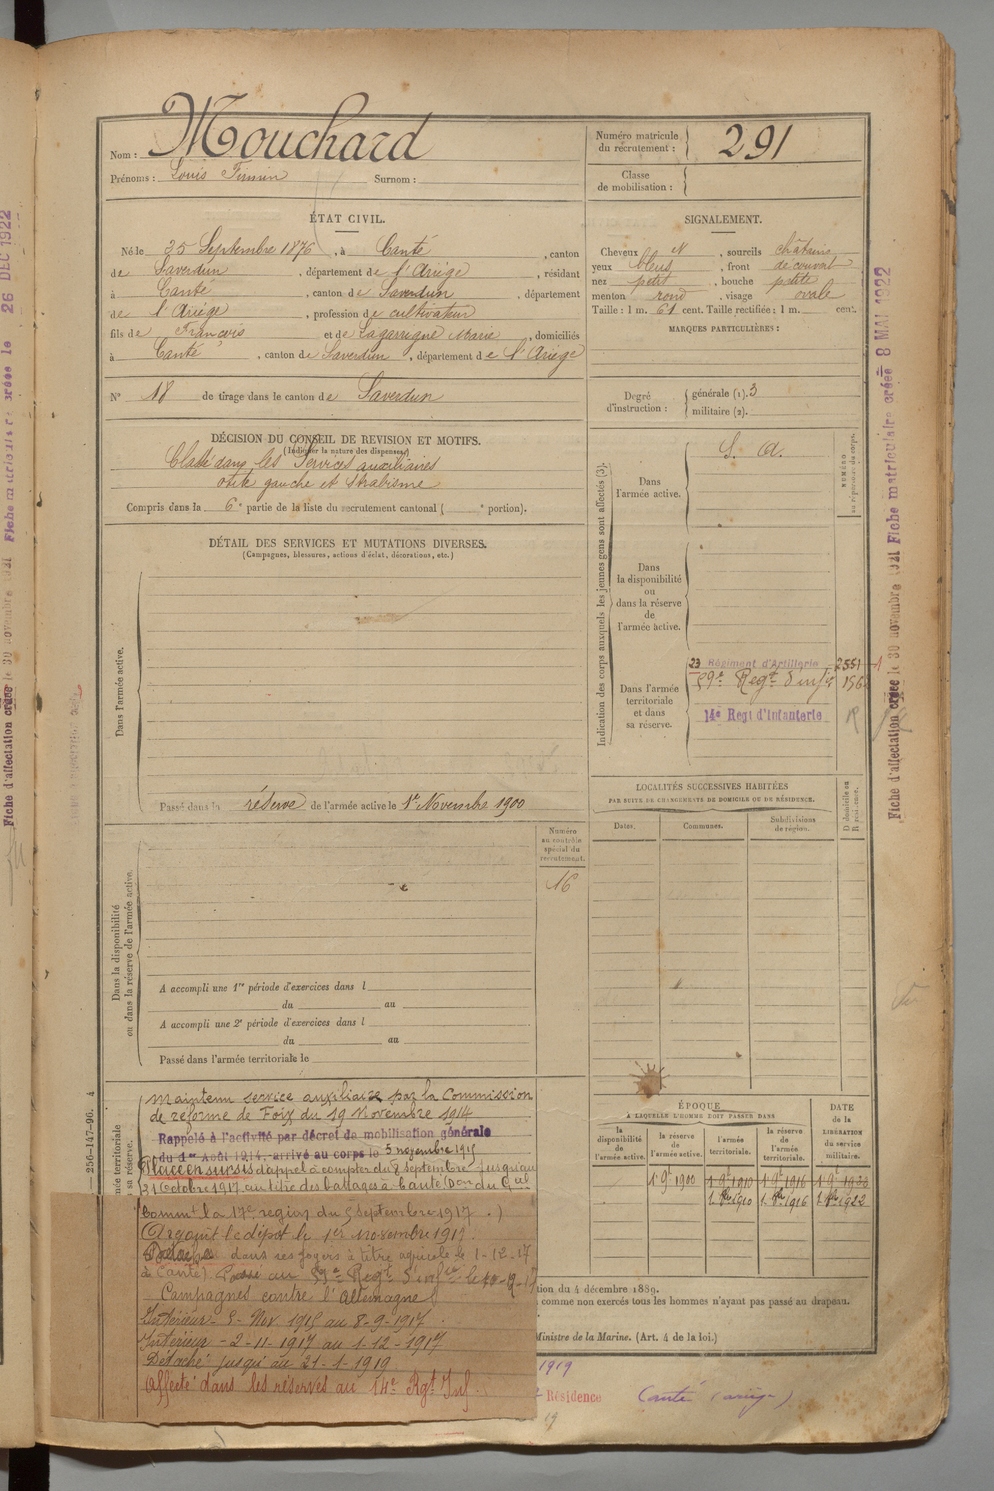 Mouchard
Nom :
Prénoms : Louis Firmin Surnom :
Numéro matricule du recrutement : 291
Classe de mobilisation :
ÉTAT CIVIL.
Né le 25 Septembre 1876, à Canté, canton
de Saverdun, département de l'Ariège, résidant
à Canté, canton de Saverdun, département
de l'Ariège, profession de cultivateur
fils de François et de Lagarrigue Marie, domiciliés
à Canté, canton de Saverdun, département de l'Ariège
N° 18 de tirage dans le canton de Saverdun
SIGNALEMENT.
Cheveux N, sourcils châtains
yeux bleus, front découvert
nez petit, bouche petite
menton rond, visage ovale
Taille : 1 m. 61 cent. Taille rectifiée : 1 m. cent.
MARQUES PARTICULIÈRES :
Degré d'instruction : générale (1). 3
militaire (2).
DÉCISION DU CONSEIL DE REVISION ET MOTIFS.
(Indiquer la nature des dispenses.)
Classé dans les Services auxiliaires
otite gauche et Strabisme
Compris dans la 6e partie de la liste du recrutement cantonal ( e portion).
DÉTAIL DES SERVICES ET MUTATIONS DIVERSES.
(Campagnes, blessures, actions d'éclat, décorations, etc.)
Dans l'armée active.
Passé dans la réserve de l'armée active le 1er Novembre 1900
Indication des corps auxquels les jeunes gens sont affectés (3).
NUMÉRO
Dans l'armée active.
S. A.
Dans la disponibilité ou dans la réserve de l'armée active.
Dans l'armée territoriale et dans sa réserve.
23 Régiment d'Artillerie 2551
59e Regt d'infie
14e Regt d'Infanterie
LOCALITÉS SUCCESSIVES HABITÉES
PAR SUITE DE CHANGEMENTS DE DOMICILE OU DE RÉSIDENCE.
Dates. Communes. Subdivisions de région.
D domicile ou R résidence.
Numéro au contrôle spécial du recrutement.
16
Dans la disponibilité ou dans la réserve de l'armée active.
A accompli une 1re période d'exercices dans l
du au
A accompli une 2e période d'exercices dans l
du au
Passé dans l'armée territoriale le
Maintenu service auxiliaire par la Commission
de réforme de Foix du 19 Novembre 1914
Rappelé à l'activité par décret de mobilisation générale
du 1er Août 1914, arrivé au corps le 5 novembre 1915
Placé en sursis d'appel à compter du 8 Septembre jusqu'au
31 Octobre 1917 au titre des battages à Canté (Don du Gal
Commt la 17e région du 5 Septembre 1917.)
dépôt le 1er novembre 1917.
Détaché dans ses foyers à titre agricole le 1-12-17
à Canté). Passé au 59e Regt d'infie le
Campagnes contre l'Allemagne
Intérieur - 5 - Nov. 1915 au 8-9-1917.
Intérieur - 2-11-1917 au 1-12-1917
Détaché jusqu'au 21-1-1919.
Affecté dans les réserves au 14e Rgt Inf.
ÉPOQUE
A LAQUELLE L'HOMME DOIT PASSER DANS
la disponibilité de l'armée active. la réserve de l'armée active. l'armée territoriale. la réserve de l'armée territoriale.
DATE DE LA LIBÉRATION du service militaire.
1 9e 1900 1 9e 1910 1 9e 1916 1 9e 1922
1. 8e 1910 1. 8e 1916 1. 8e 1922
tion du 4 décembre 1889.
comme non exercés tous les hommes n'ayant pas passé au drapeau.
Ministre de la Marine. (Art. 4 de la loi.)
1919
Résidence Canté (Ariège)
—256-147-96. 4
Fiche d'affectation créée le 30 novembre 1921 Fiche matriculaire créée le 26 DEC 1922
Fiche d'affectation créée le 30 novembre 1921 Fiche matriculaire créée 8 MAI 1922